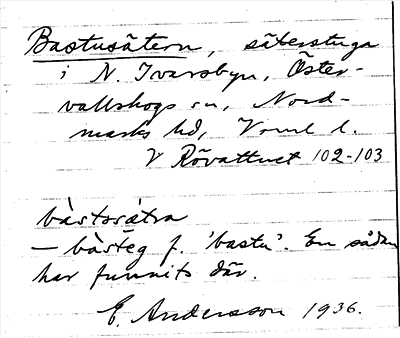 Bastusätern, säterstuga
i N. Ivarsbyn, Öster-
vallskogs sn, Nord-
marks hd, Verml l.
V Rövattnet 102-103
bàstsrátra
– bàstèg f. 'bastu'. En sådan
har funnits där.
E. Andersson 1936.